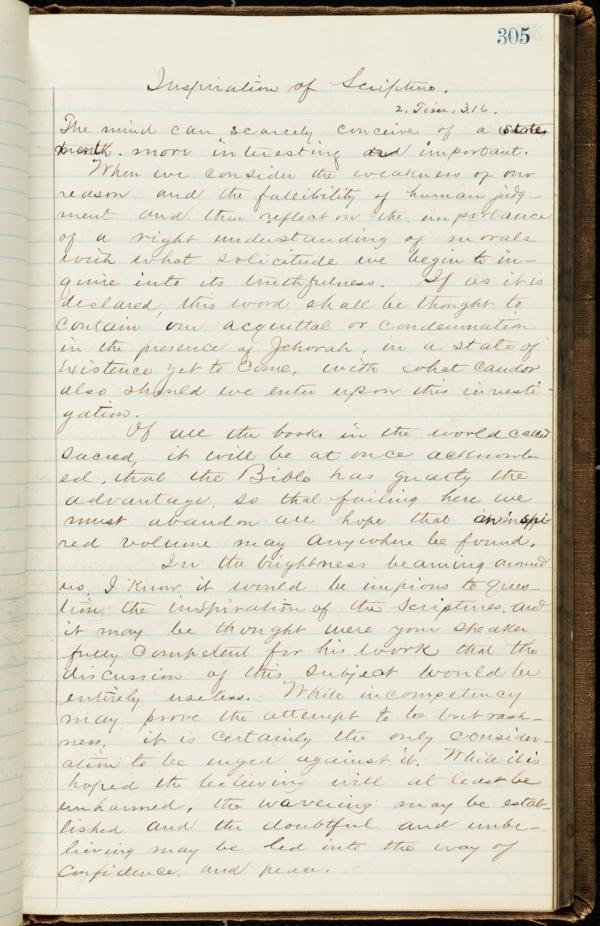 305
Inspiration of Scripture.
2. Tim. 3.16.
The mind can scarcely conceive of a state
ment more interesting and important.
When we consider the weakness of our
reason and the fallibility of human judg-
ment and then reflect on the importance
of a right understanding of morals
with what solicitude we begin to in-
quire into its truthfulness. If as it is
declared, this word shall be thought to
contain our acquittal or condemnation
in the presence of Jehovah, in a state of
existence yet to come, with what candor
also should we enter upon this investi-
gation.
Of all the books in the world called
sacred, it will be at once acknowl-
ed, that the Bible has greatly the
advantage, so that failing here we
must abandon all hope that an inspi-
red volume may anywhere be found.
In the brightness beaming around
us, I know it would be impious to ques-
tion the inspiration of the Scriptures, and
it may be thought were your speaker
fully competent for his work that the
discussion of this subject would be
entirely useless. While incompetency
may prove the attempt to be but rash-
ness, it is certainly the only consider-
ation to be urged against it. While it is
hoped the believing will at least be
unharmed, the wavering may be estab-
lished and the doubtful and unbe-
lieving may be led into the way of
confidence and peace.